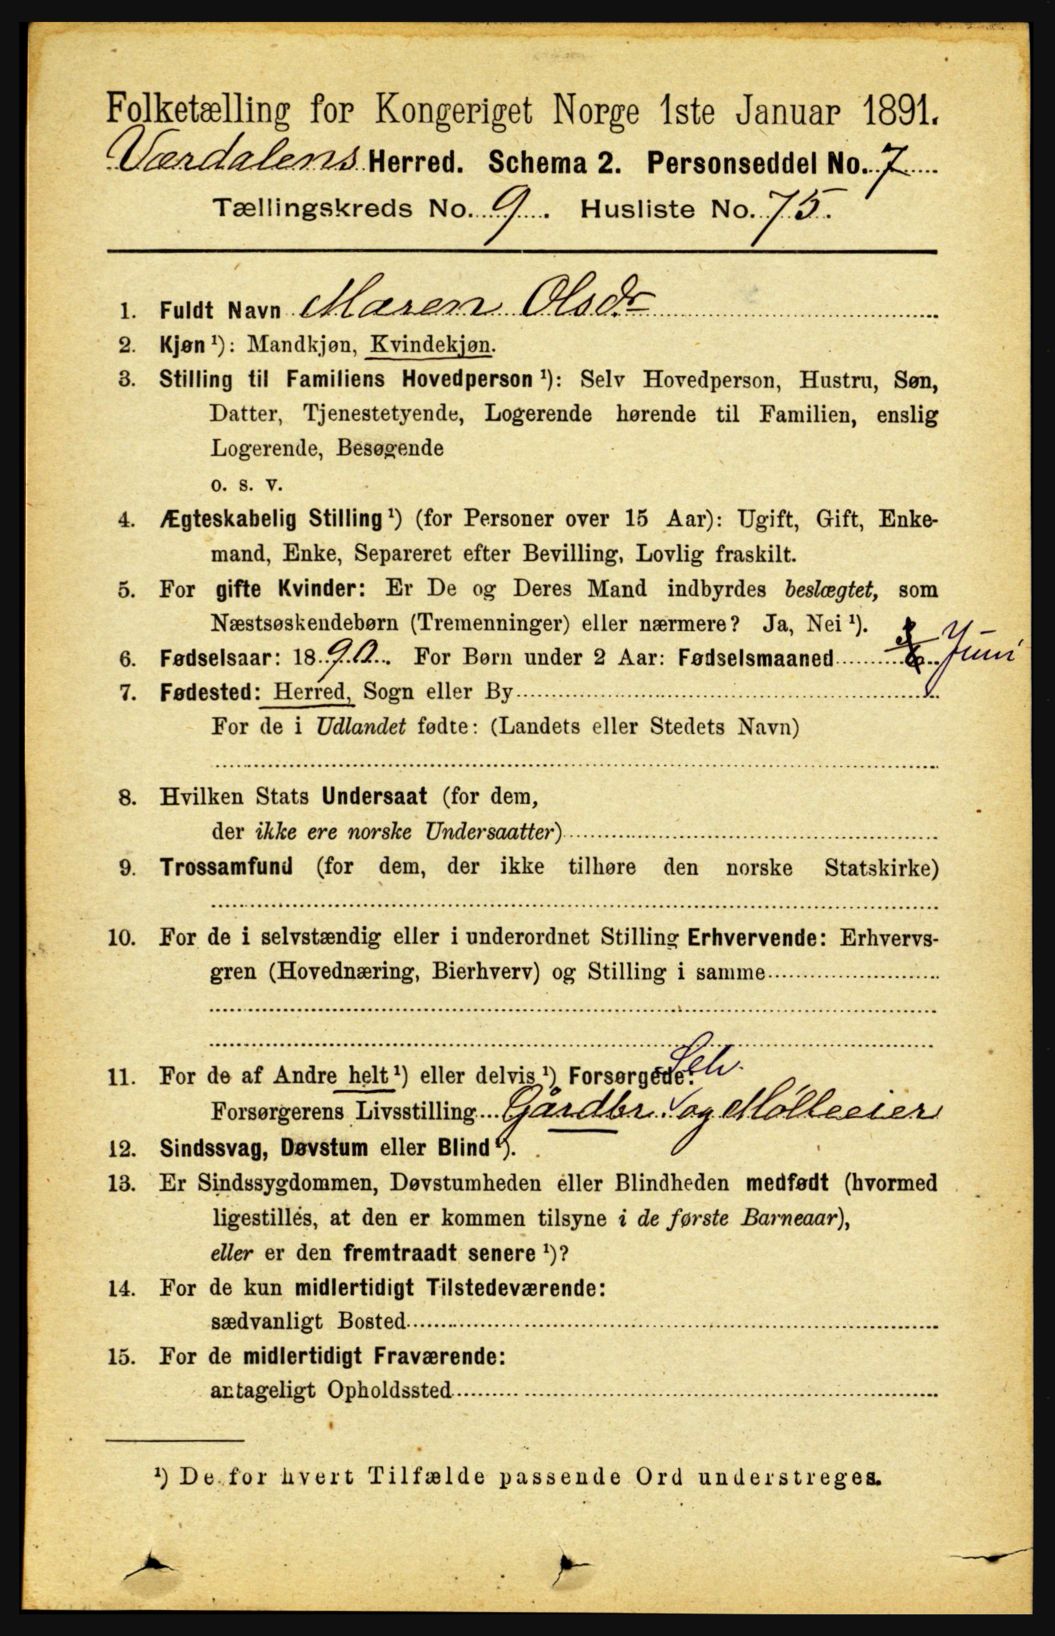 Folketælling for Kongeriget Norge 1ste Januar 1891.
Værdalens Herred. Schema 2. Personseddel No. 7
Tællingskreds No. 9. Husliste No. 75.
1. Fuldt Navn Maren Olsdr
2. Kjøn ¹): Mandkjøn, Kvindekjøn.
3. Stilling til Familiens Hovedperson ¹): Selv Hovedperson, Hustru, Søn,
Datter, Tjenestetyende, Logerende hørende til Familien, enslig
Logerende, Besøgende
o. s. v.
4. Ægteskabelig Stilling ¹) (for Personer over 15 Aar): Ugift, Gift, Enke-
mand, Enke, Separeret efter Bevilling, Lovlig fraskilt.
5. For gifte Kvinder: Er De og Deres Mand indbyrdes beslægtet, som
Næstsøskendebørn (Tremenninger) eller nærmere? Ja, Nei ¹).
6. Fødselsaar: 1890. For Børn under 2 Aar: Fødselsmaaned Juni
7. Fødested: Herred, Sogn eller By
For de i Udlandet fødte: (Landets eller Stedets Navn)
8. Hvilken Stats Undersaat (for dem,
der ikke ere norske Undersaatter)
9. Trossamfund (for dem, der ikke tilhøre den norske Statskirke)
10. For de i selvstændig eller i underordnet Stilling Erhvervende: Erhvervs-
gren (Hovednæring, Bierhverv) og Stilling i samme
11. For de af Andre helt ¹) eller delvis ¹) Forsørgede: Selv
Forsørgerens Livsstilling Gårdbr. og Mølleeier
12. Sindssvag, Døvstum eller Blind ¹).
13. Er Sindssygdommen, Døvstumheden eller Blindheden medfødt (hvormed
ligestilles, at den er kommen tilsyne i de første Barneaar),
eller er den fremtraadt senere ¹)?
14. For de kun midlertidigt Tilstedeværende:
sædvanligt Bosted
15. For de midlertidigt Fraværende:
antageligt Opholdssted
¹) De for hvert Tilfælde passende Ord understreges.